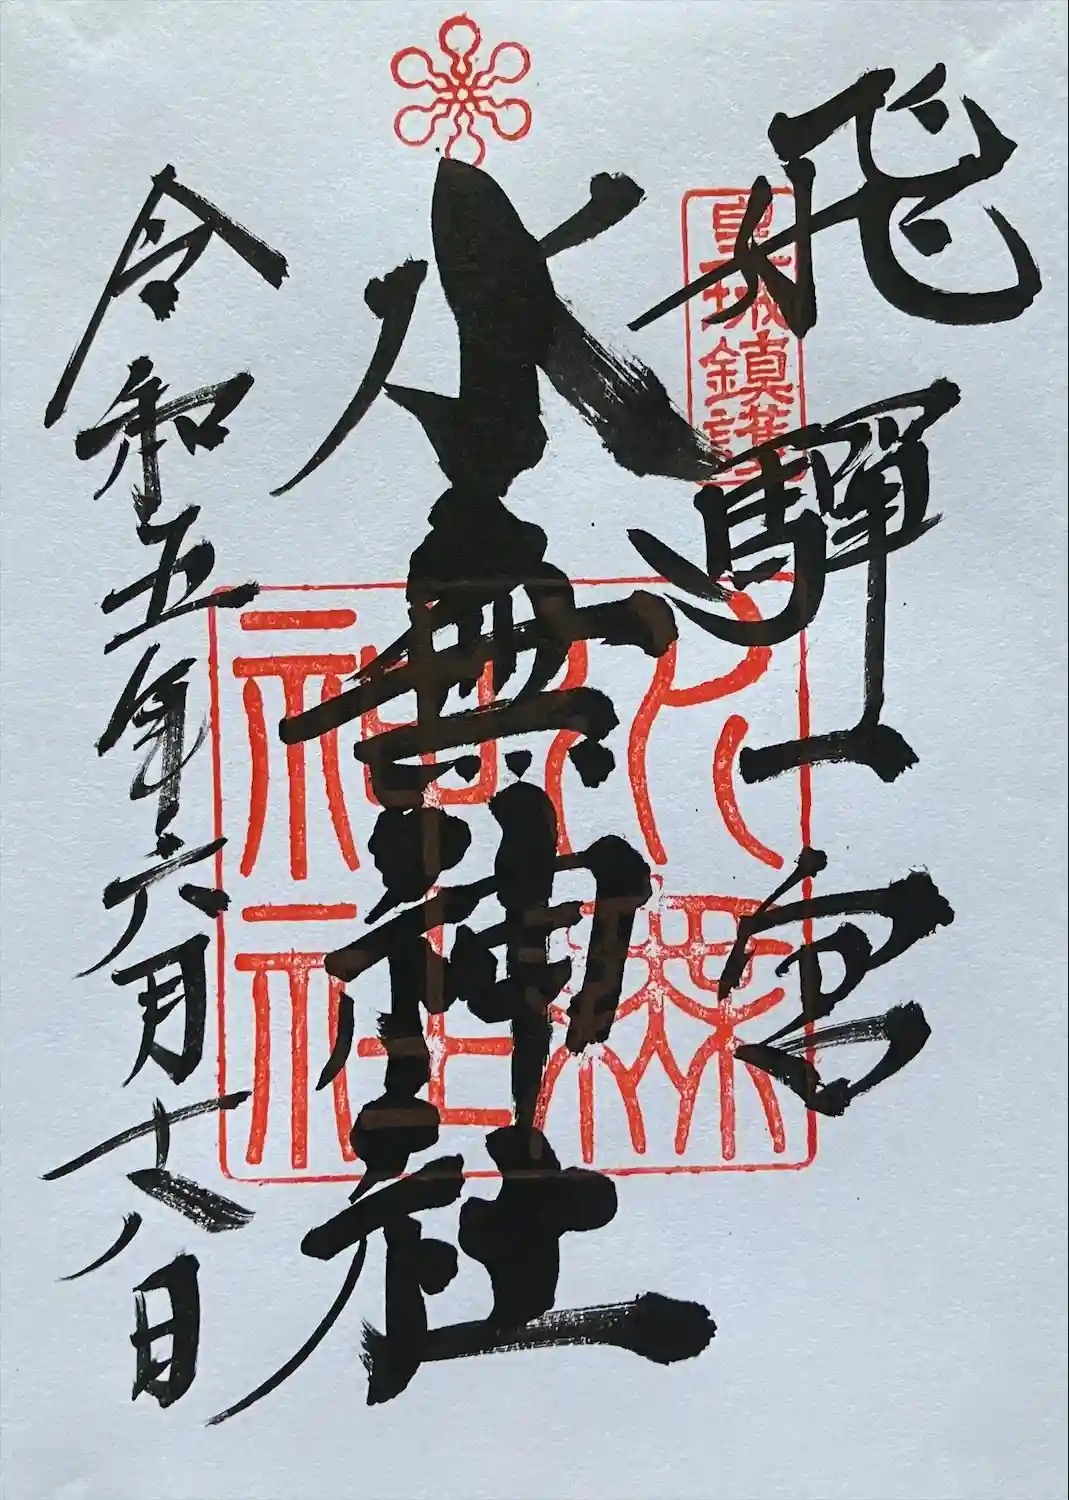 飛驒一宮
皇城鎮護
水無神社
水無神社
令和五年六月十八日